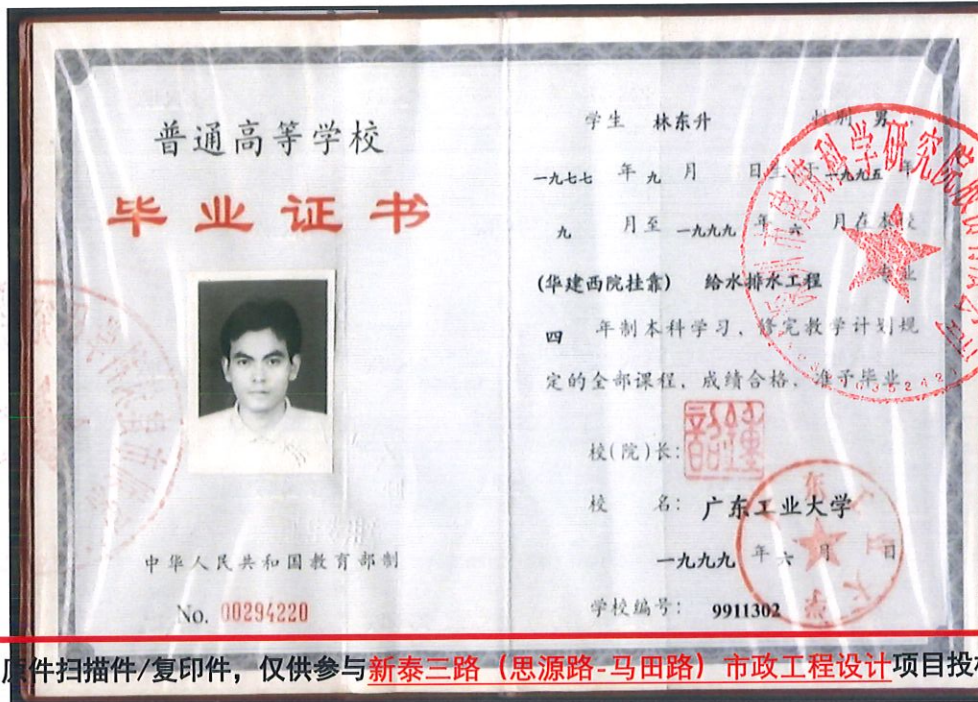 普通高等学校
毕业证书
中华人民共和国教育部制
No. 00294220
学生 林东升 性别 男,
一九七七 年 九 月 日生,于 一九九五 年
九 月至 一九九九 年 六 月在本校
(华建西院挂靠) 给水排水工程 专业
四 年制本科学习，修完教学计划规
定的全部课程，成绩合格，准予毕业。
校(院)长:
校 名: 广东工业大学
一九九九 年 六 月 日
学校编号: 9911302
原件扫描件/复印件，仅供参与新泰三路（思源路-马田路）市政工程设计项目投标